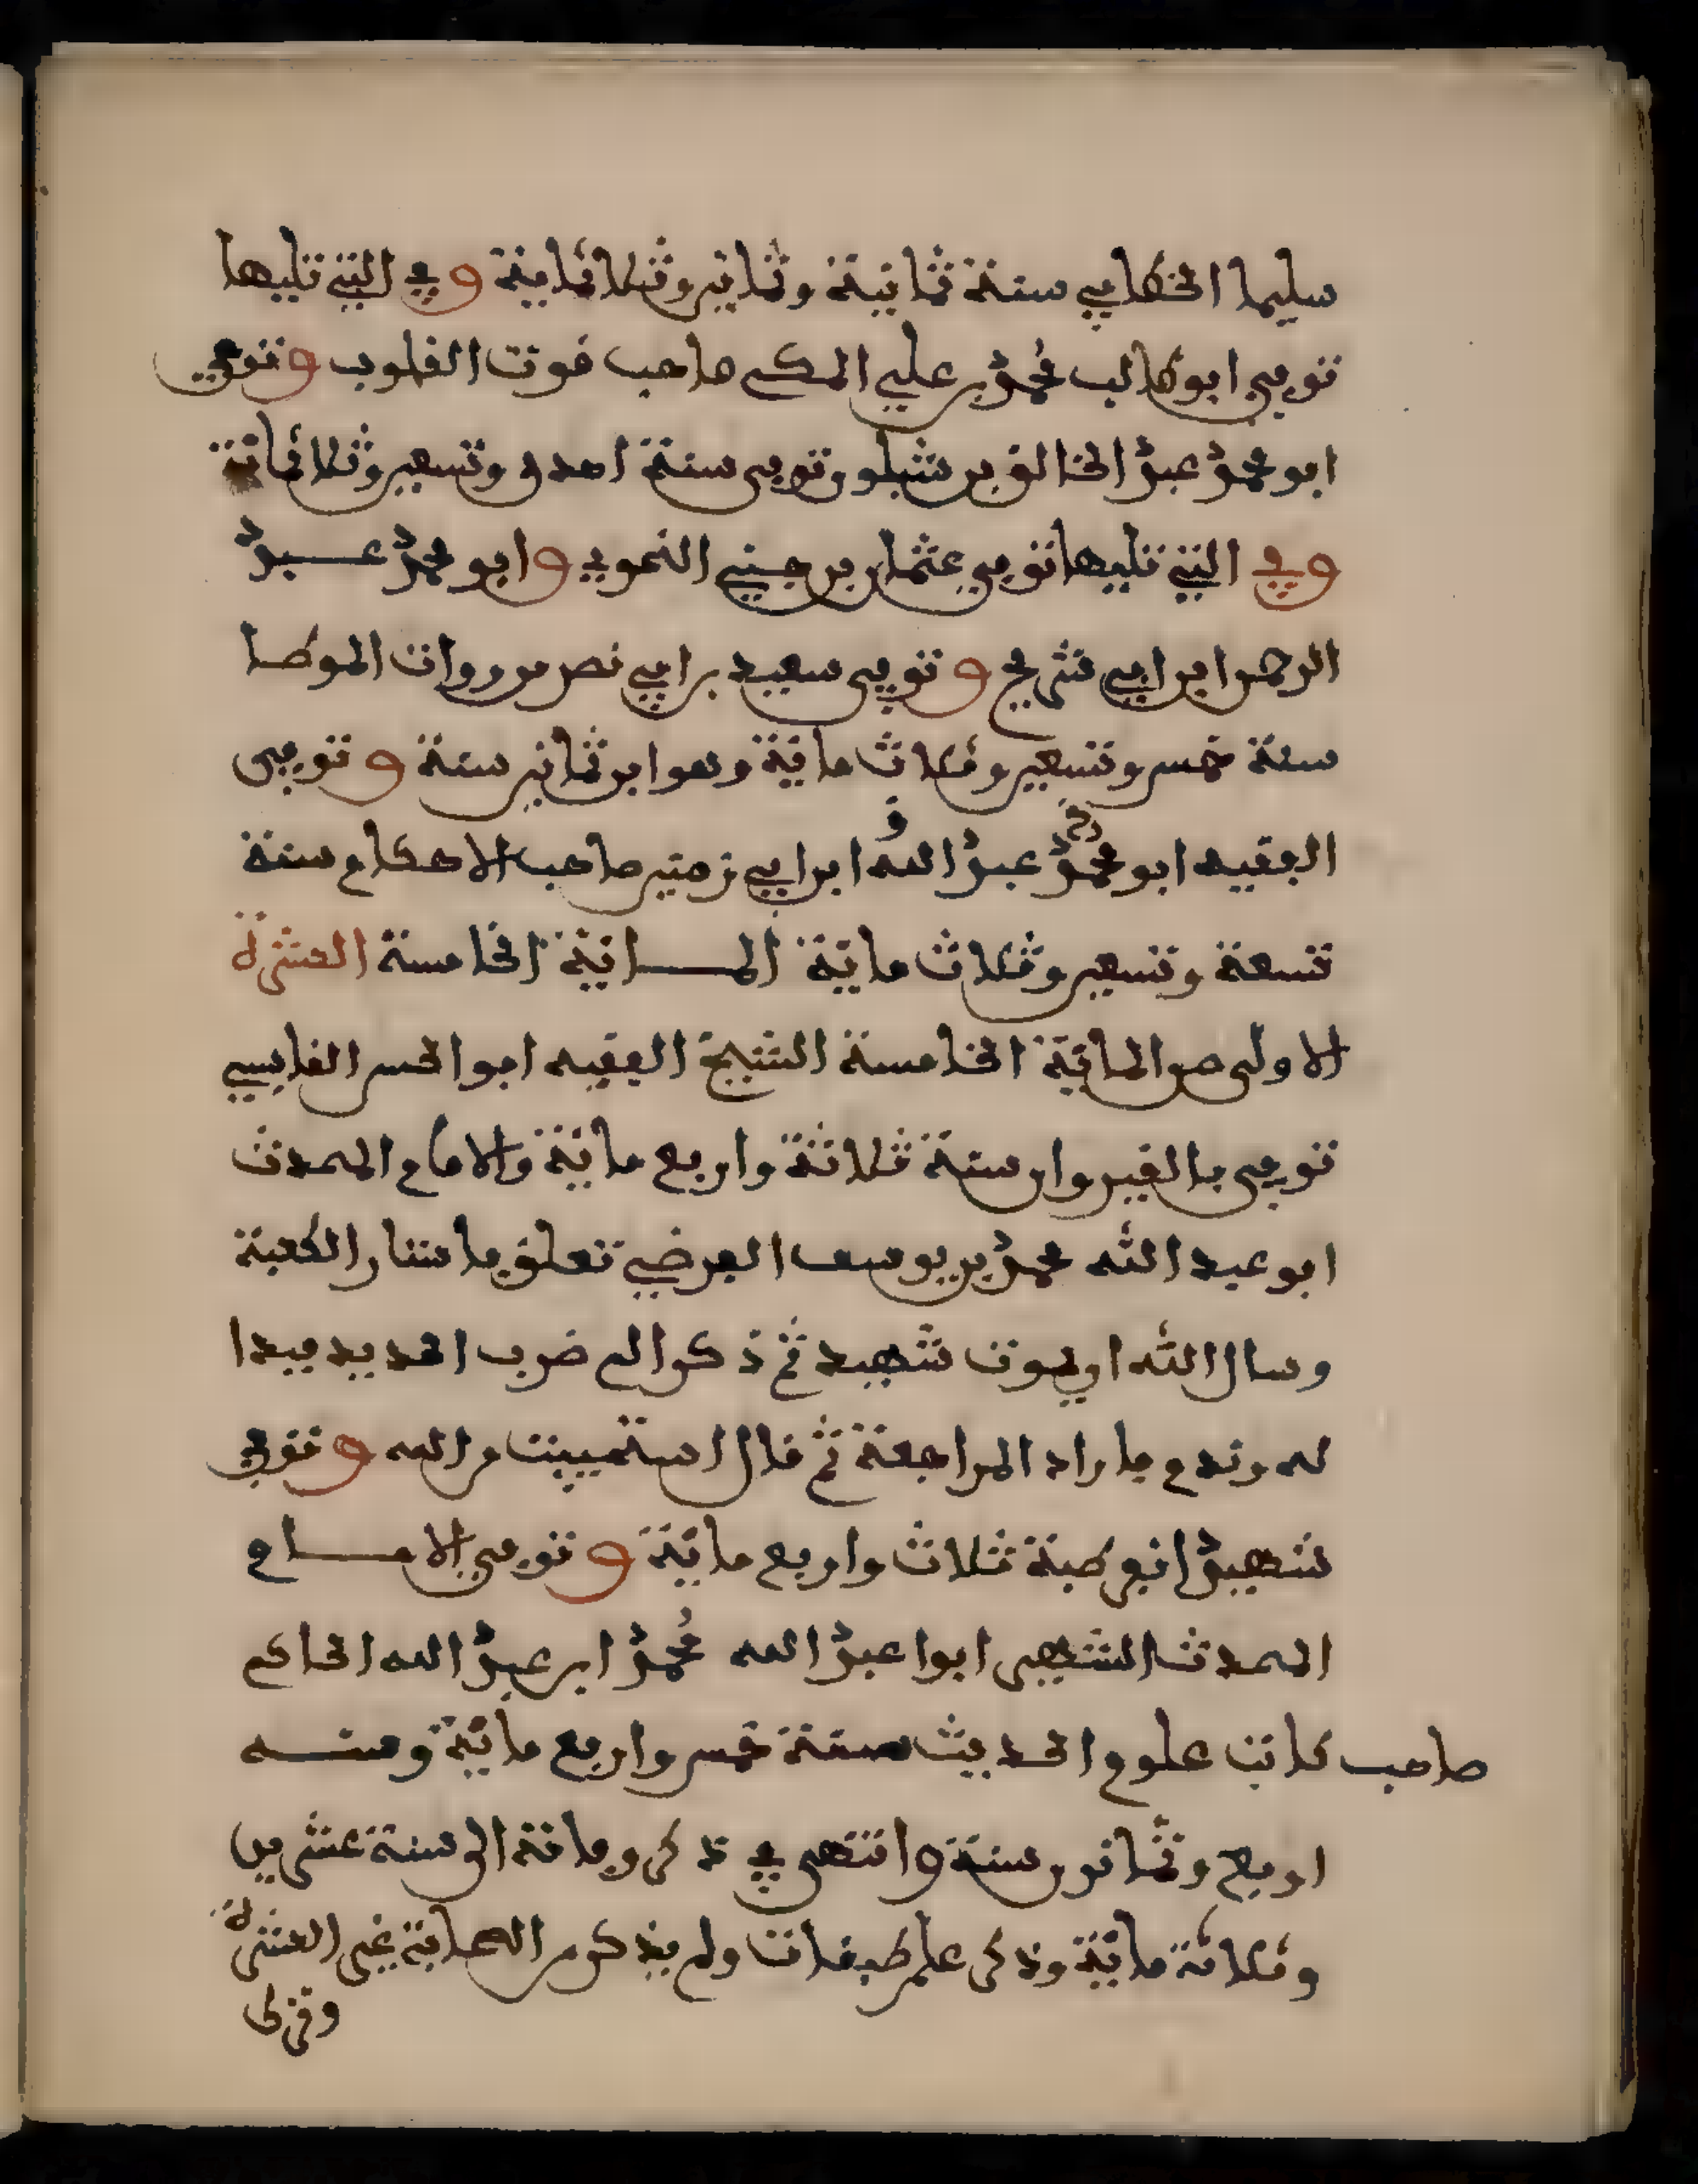 سليما الخطابي سنة ثمانية وثمانين وثلاثماية وفي التي تليها
توفي ابو طالب محمد بن علي المكي صاحب قوت القلوب وتوفي
ابو محمد عبد الخالق بن شبلون وتوفي سنة احدى وتسعين وثلاثمائة
وفي التي تليها توفي عثمان بن جني النحوي وابو محمد عبد
الرحمن ابن ابي شريح وتوفي سعيد بن ابي نصر من روات الموطا
سنة خمس وتسعين وثلاث مائة وهو ابن ثمانين سنة وتوفي
الفقيه ابو محمد عبد الله ابن ابي زمنين صاحب الاحكام سنة
تسعة وتسعين وثلاث مائة المائة الخامسة العشرة
الاولى من المائة الخامسة الشيخ الفقيه ابو الحسن القابسي
توفي بالقيروان سنة ثلاثة واربع مائة والامام المحدث
ابو عبد الله محمد بن يوسف الفرضي تعلق باستار الكعبة
وسال الله ان يموت شهيد ثم ذكر الم ضرب الحديد فبدا
له وندم فاراد المراجعة ثم قال استحييت من الله وتوفي
شهيد انبي طبنة ثلاث واربع مائة وتوفي الامام
المحدث الشهير ابوا عبد الله محمد ابن عبد الله الحاكم
صاحب كتاب علوم الحديث سنة خمس واربع مائة وسنه
اربع وثمانون سنة وانتهى في ذكر وفاته الى سنة عشرين
وثلاثة مائة وذكر على طبقات ولم يذكر من الصحابة غير العشرة
وترك